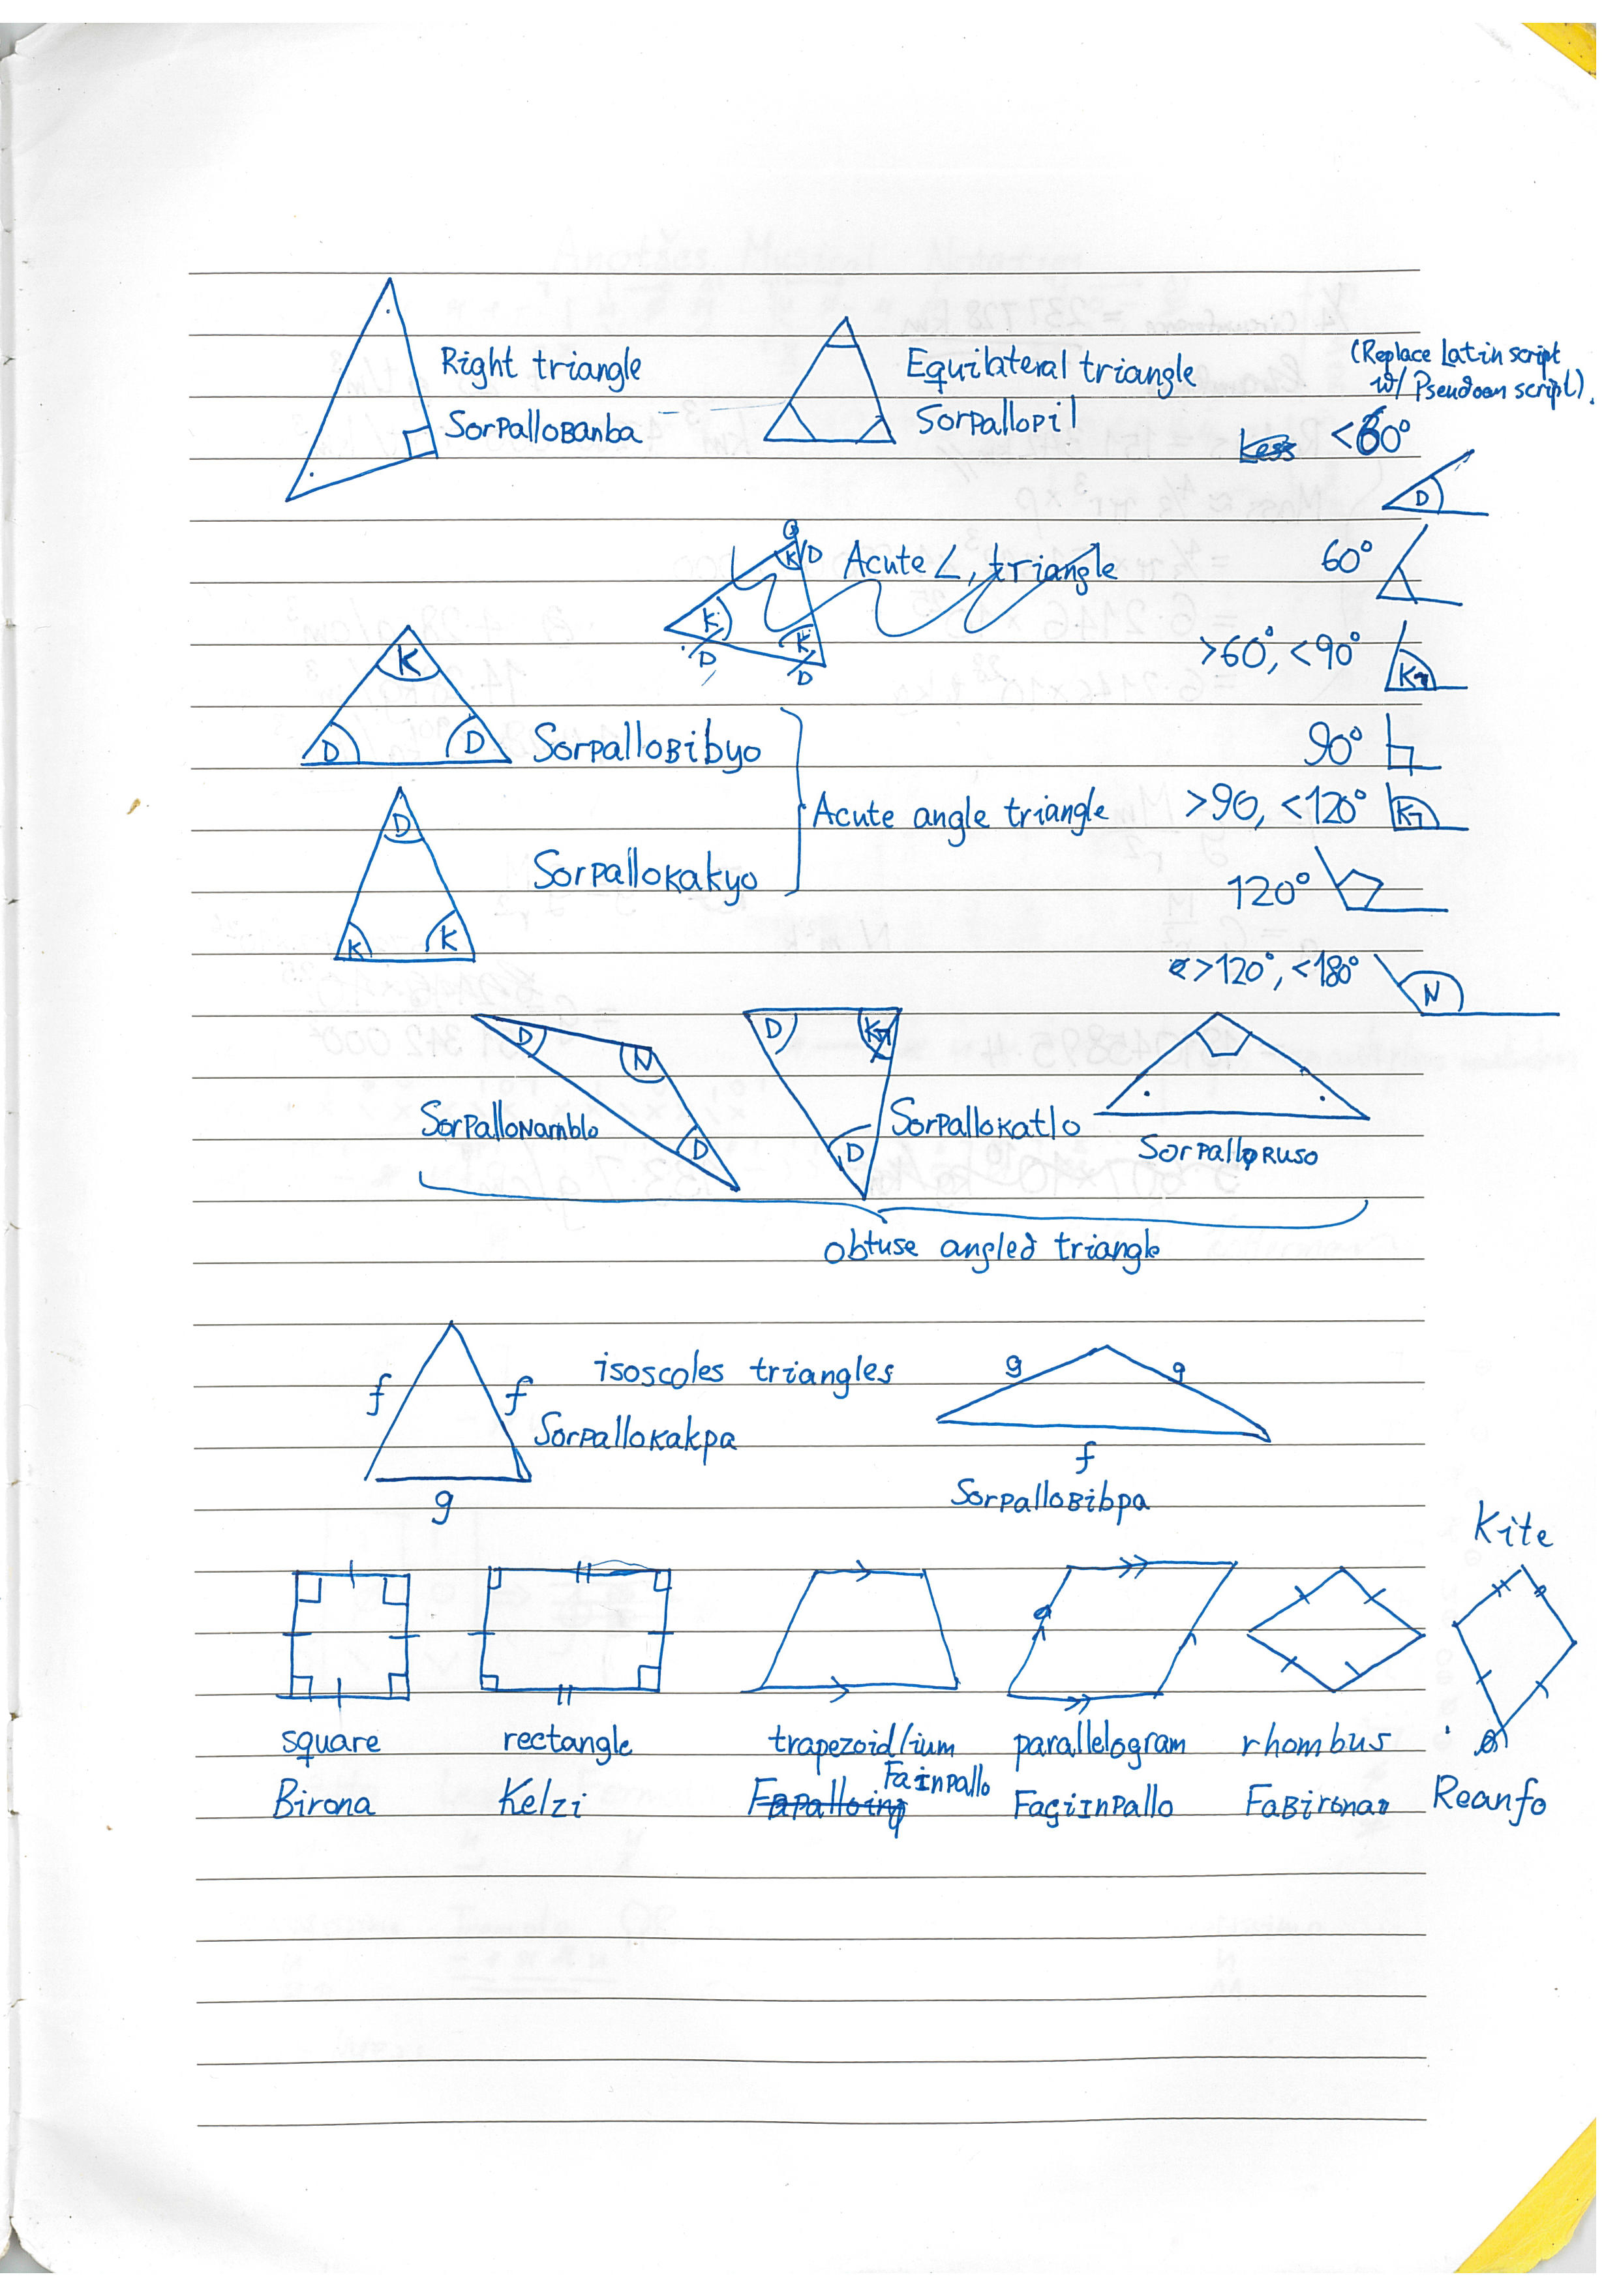 Right triangle
SorpalloBanba
Equilateral triangle
Sorpallopil
(Replace Latin script
w/ Pseudoen script).
<60°
D
60°
>60°, <90°
K
90°
>90, <120°
K
120°
>120°, <180°
N
Acute ∠, triangle
K D
K
D
K
D
K
D D
SorpalloBibyo
D
K K
Sorpallokakyo
Acute angle triangle
D N D
SorpalloNamblo
D K D
Sorpallokatlo
SorpalloRuso
obtuse angled triangle
f f
g
isoscoles triangles
Sorpallokakpa
g g
f
SorpalloBibpa
Kite
square rectangle trapezoid/ium parallelogram rhombus
Birona Kelzi Fainpallo FagiInpallo Reanfo